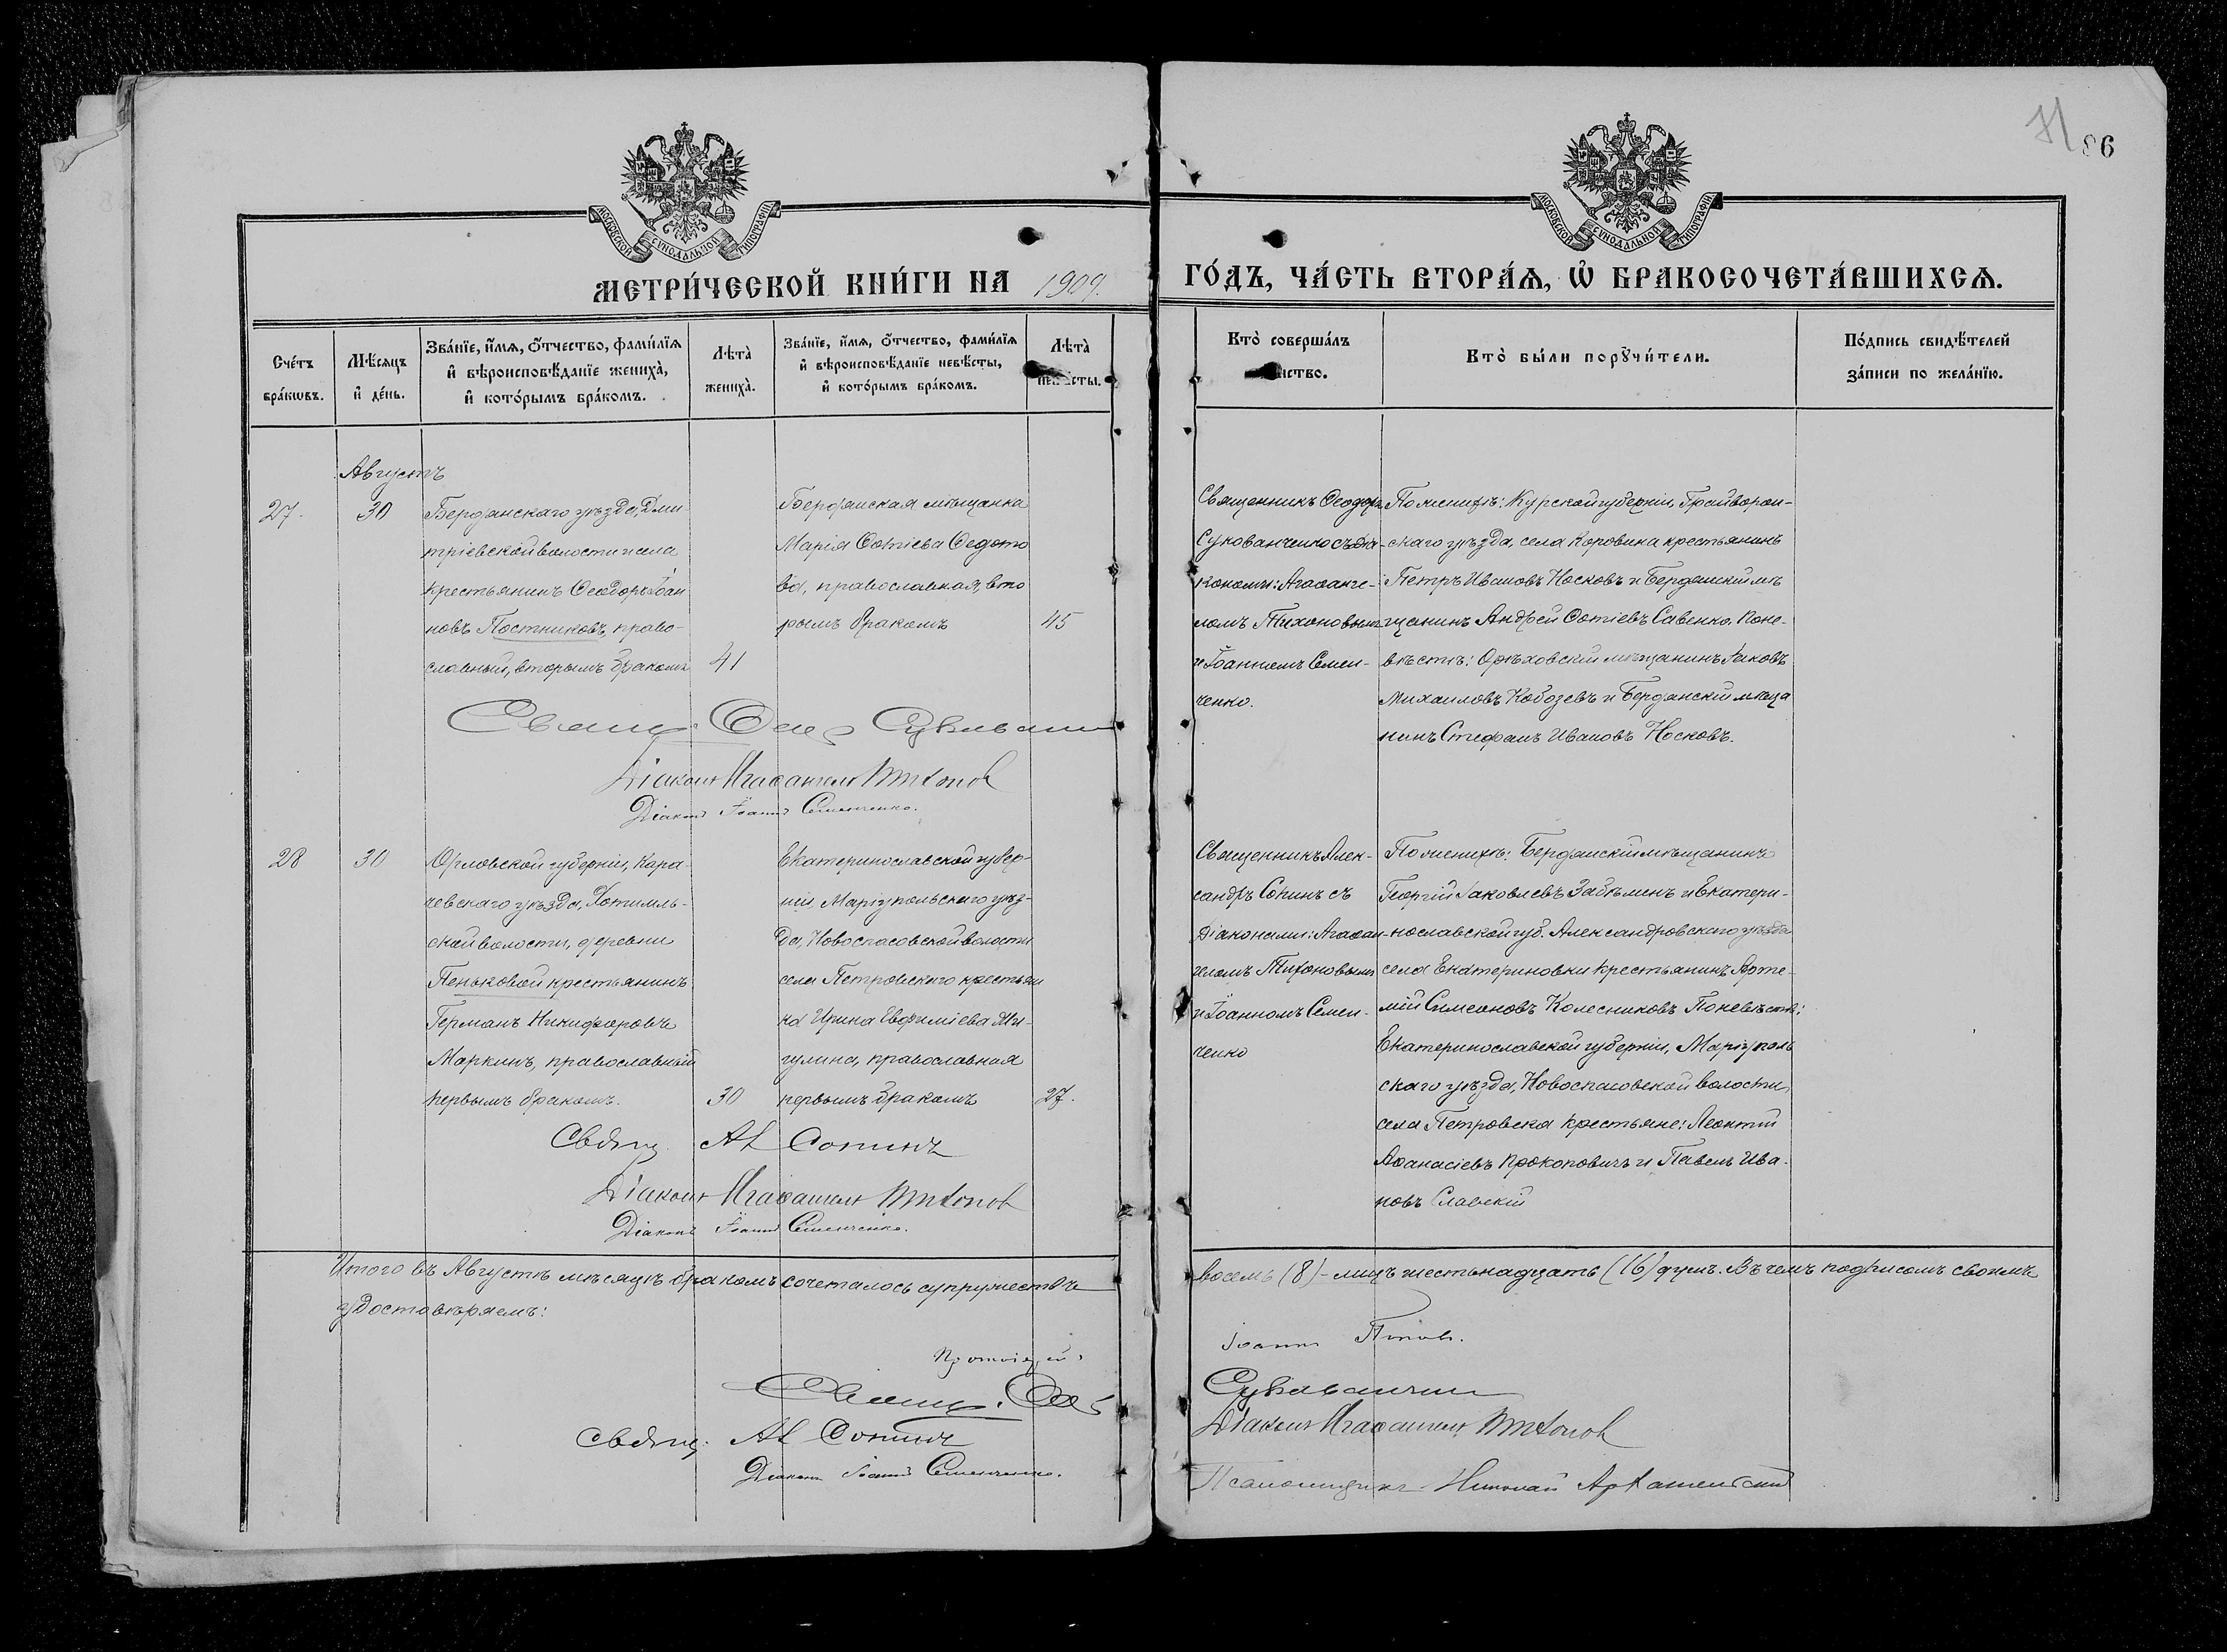 86
МОСКОВСКОЙ СѴНОДАЛЬНОЙ ТИПОГРАФІИ
МОСКОВСКОЙ СѴНОДАЛЬНОЙ ТИПОГРАФІИ
МЕТРИ́ЧЕСКОЙ КНИ́ГИ НА 1909.
ГО́ДЪ, ЧА́СТЬ ВТОРА́Я, Ѡ҆ БРАКОСОЧЕТА́ВШИХСЯ.
Сче́тъ
бра́кѡвъ.
Мѣ́сяцъ
и҆ де́нь.
Зва́нїе, и҆́мя, ѻ҆́тчество, фами́лїя
и҆ вѣроисповѣ́данїе жениха̀,
и҆ кото́рымъ бра́комъ.
Лѣта̀
жениха̀.
Зва́нїе, и҆́мя, ѻ҆́тчество, фами́лїя
и҆ вѣроисповѣ́данїе невѣ́сты,
и҆ кото́рымъ бра́комъ.
Лѣта̀
невѣ́сты.
Кто̀ соверша́лъ
та́инство.
Кто̀ бы́ли порꙋчи́тели.
По́дпись свидѣ́телей
за́писи по жела́нїю.
Августъ
27.
30
Бердянскаго уѣзда, Дми
тріевской волости и села
крестьянинъ Ѳеодоръ Іоан
новъ Постниковъ, право-
славный, вторымъ бракомъ
41
Бердянская мѣщанка
Марія Фотіева Ѳедото
ва, православная, вто
рымъ бракомъ
45
Священникъ Ѳеодоръ
Сукованченко съ діа-
конами: Агаѳанге-
ломъ Тихоновымъ
и Іоанномъ Семен-
ченко.
По женихѣ: Курской губерніи, Грайворон-
скаго уѣзда, села Коровина крестьянинъ
Петръ Ивановъ Носковъ и Бердянскій мѣ
щанинъ Андрей Фотіевъ Савенко. По не-
вѣстѣ: Орѣховскій мѣщанинъ Іаковъ
Михаиловъ Кобозевъ и Бердянскій мѣща
нинъ Стефанъ Ивановъ Носковъ.
Свящ. Ѳео Сукованч
Діаконъ Агаѳангелъ Тихонов
Діаконъ Іоаннъ Семенченко.
28
30
Орловской губерніи, Кара-
чевскаго уѣзда, Хотимль-
ской волости, деревни
Пеньковой крестьянинъ
Германъ Никифоровъ
Маркинъ, православный
первымъ бракомъ.
30
Екатеринославской губер-
ніи, Маріупольскаго уѣз-
да, Новоспасовской волости
села Петровскаго крестьян
ка Ирина Евфиміева Ми-
гулина, православная
первымъ бракомъ
27.
Священникъ Алек-
сандръ Сопинъ съ
Діаконами: Агаѳан-
геломъ Тихоновымъ
и Іоанномъ Семен-
ченко
По женихѣ: Бердянскій мѣщанинъ
Георгій Іаковлевъ Забѣлинъ и Екатери-
нославской губ. Александровскаго уѣзда
села Екатериновки крестьянинъ Арте-
мій Симеоновъ Колесниковъ По невѣстѣ:
Екатеринославской губерніи, Маріуполь
скаго уѣзда, Новоспасовской волости,
села Петровска крестьяне: Леонтій
Аѳанасіевъ Прокоповичъ и Павелъ Ива-
новъ Славскій
Свящ. Ал Сопинъ
Діаконъ Агаѳангелъ Тихонов
Діаконъ Іоаннъ Семенченко.
Итого въ Августѣ мѣсяцѣ бракомъ сочеталось супружествъ восемь (8) - лицъ шестьнадцать (16) душъ. Въ чемъ подписомъ своимъ
удостовѣряемъ:
Протоіерей Іоаннъ
Свящ. Ѳео Сукованчен
Свящ. Ал Сопинъ
Діаконъ Агаѳангелъ Тихонов
Діаконъ Іоаннъ Семенченко.
Псаломщикъ Николай Архангельскій